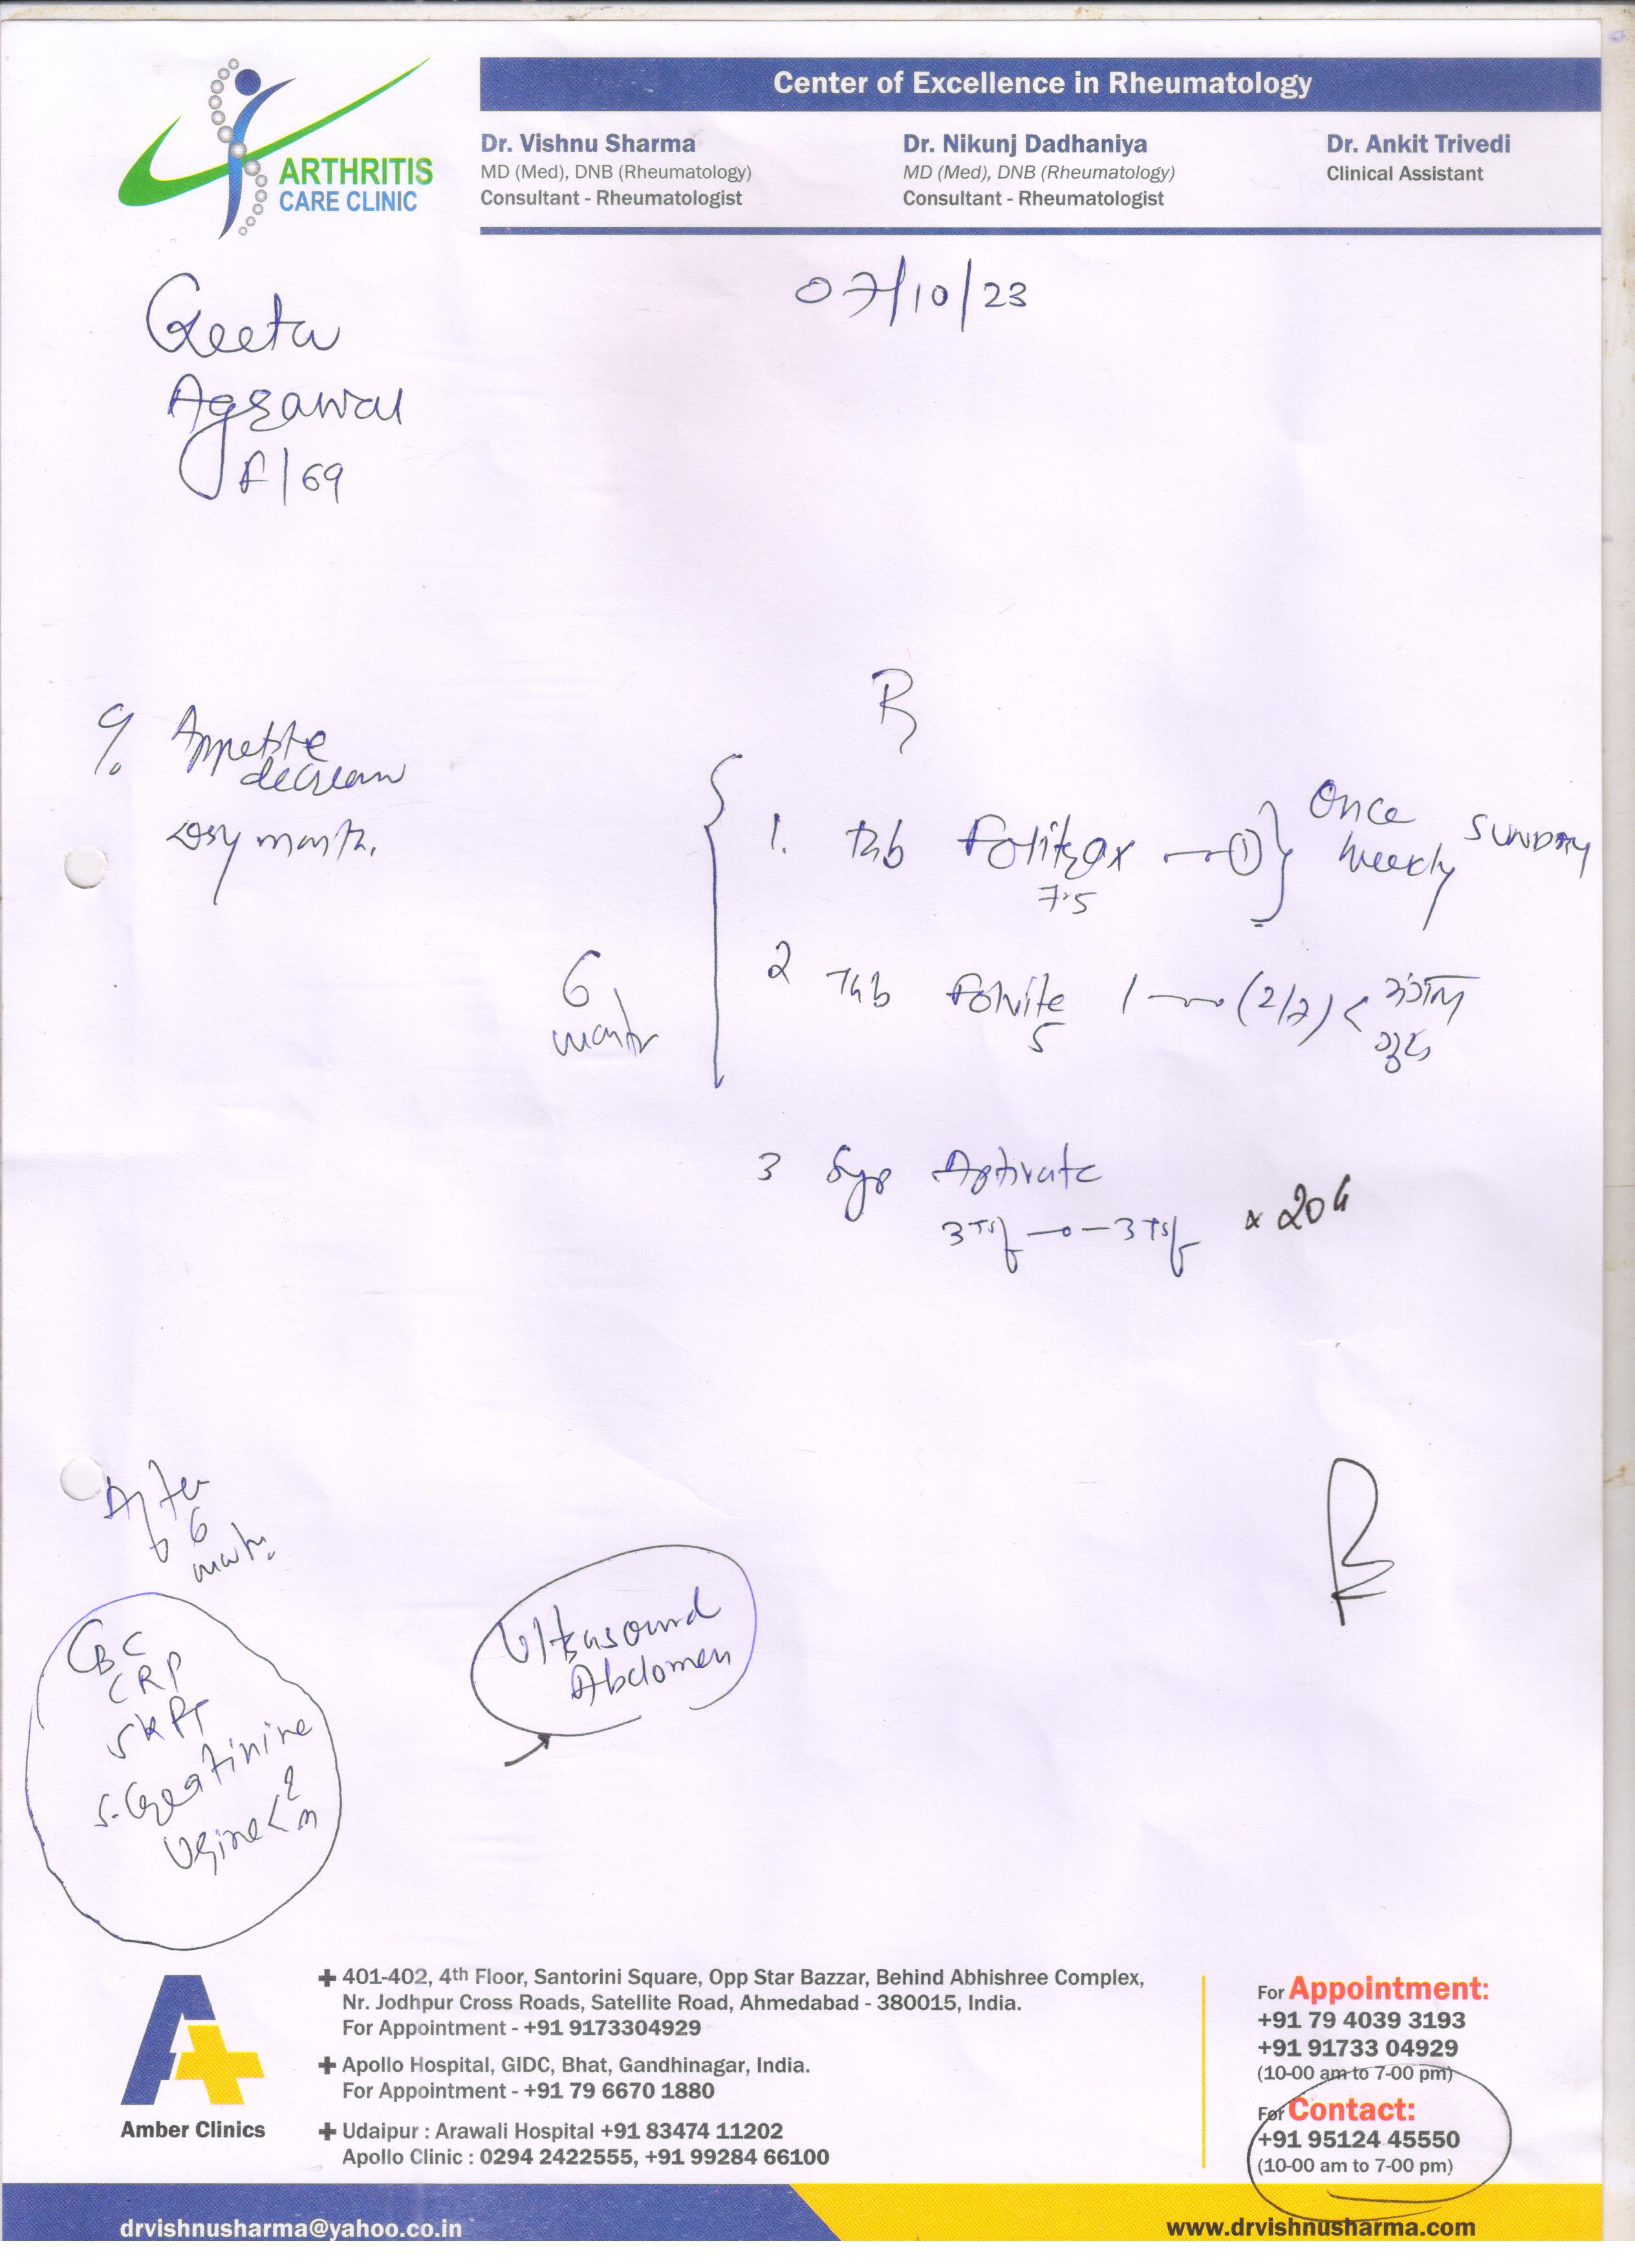 Center of Excellence in Rheumatology
ARTHRITIS
CARE CLINIC
Dr. Vishnu Sharma
MD (Med), DNB (Rheumatology)
Consultant - Rheumatologist
Dr. Nikunj Dadhaniya
MD (Med), DNB (Rheumatology)
Consultant - Rheumatologist
Dr. Ankit Trivedi
Clinical Assistant
07/10/23
Geeta
Agrawal
F/69
Appetite
decrease
Dry mouth.
R
1. Tab Folitrax 1 } Once weekly SUNDAY
7.5
2 Tab Folvite 1 (2/7) < मंगल
5
6
month
3 Syp Aptivate
3 Tsf — 0 — 3 Tsf x 20d
After
6
month.
CBC
CRP
SGPT
S. Creatinine
Urine < R
M
Ultrasound
Abdomen
Amber Clinics
401-402, 4th Floor, Santorini Square, Opp Star Bazzar, Behind Abhishree Complex,
Nr. Jodhpur Cross Roads, Satellite Road, Ahmedabad - 380015, India.
For Appointment - +91 9173304929
Apollo Hospital, GIDC, Bhat, Gandhinagar, India.
For Appointment - +91 79 6670 1880
Udaipur : Arawali Hospital +91 83474 11202
Apollo Clinic : 0294 2422555, +91 99284 66100
For Appointment:
+91 79 4039 3193
+91 91733 04929
(10-00 am to 7-00 pm)
For Contact:
+91 95124 45550
(10-00 am to 7-00 pm)
drvishnusharma@yahoo.co.in
www.drvishnusharma.com